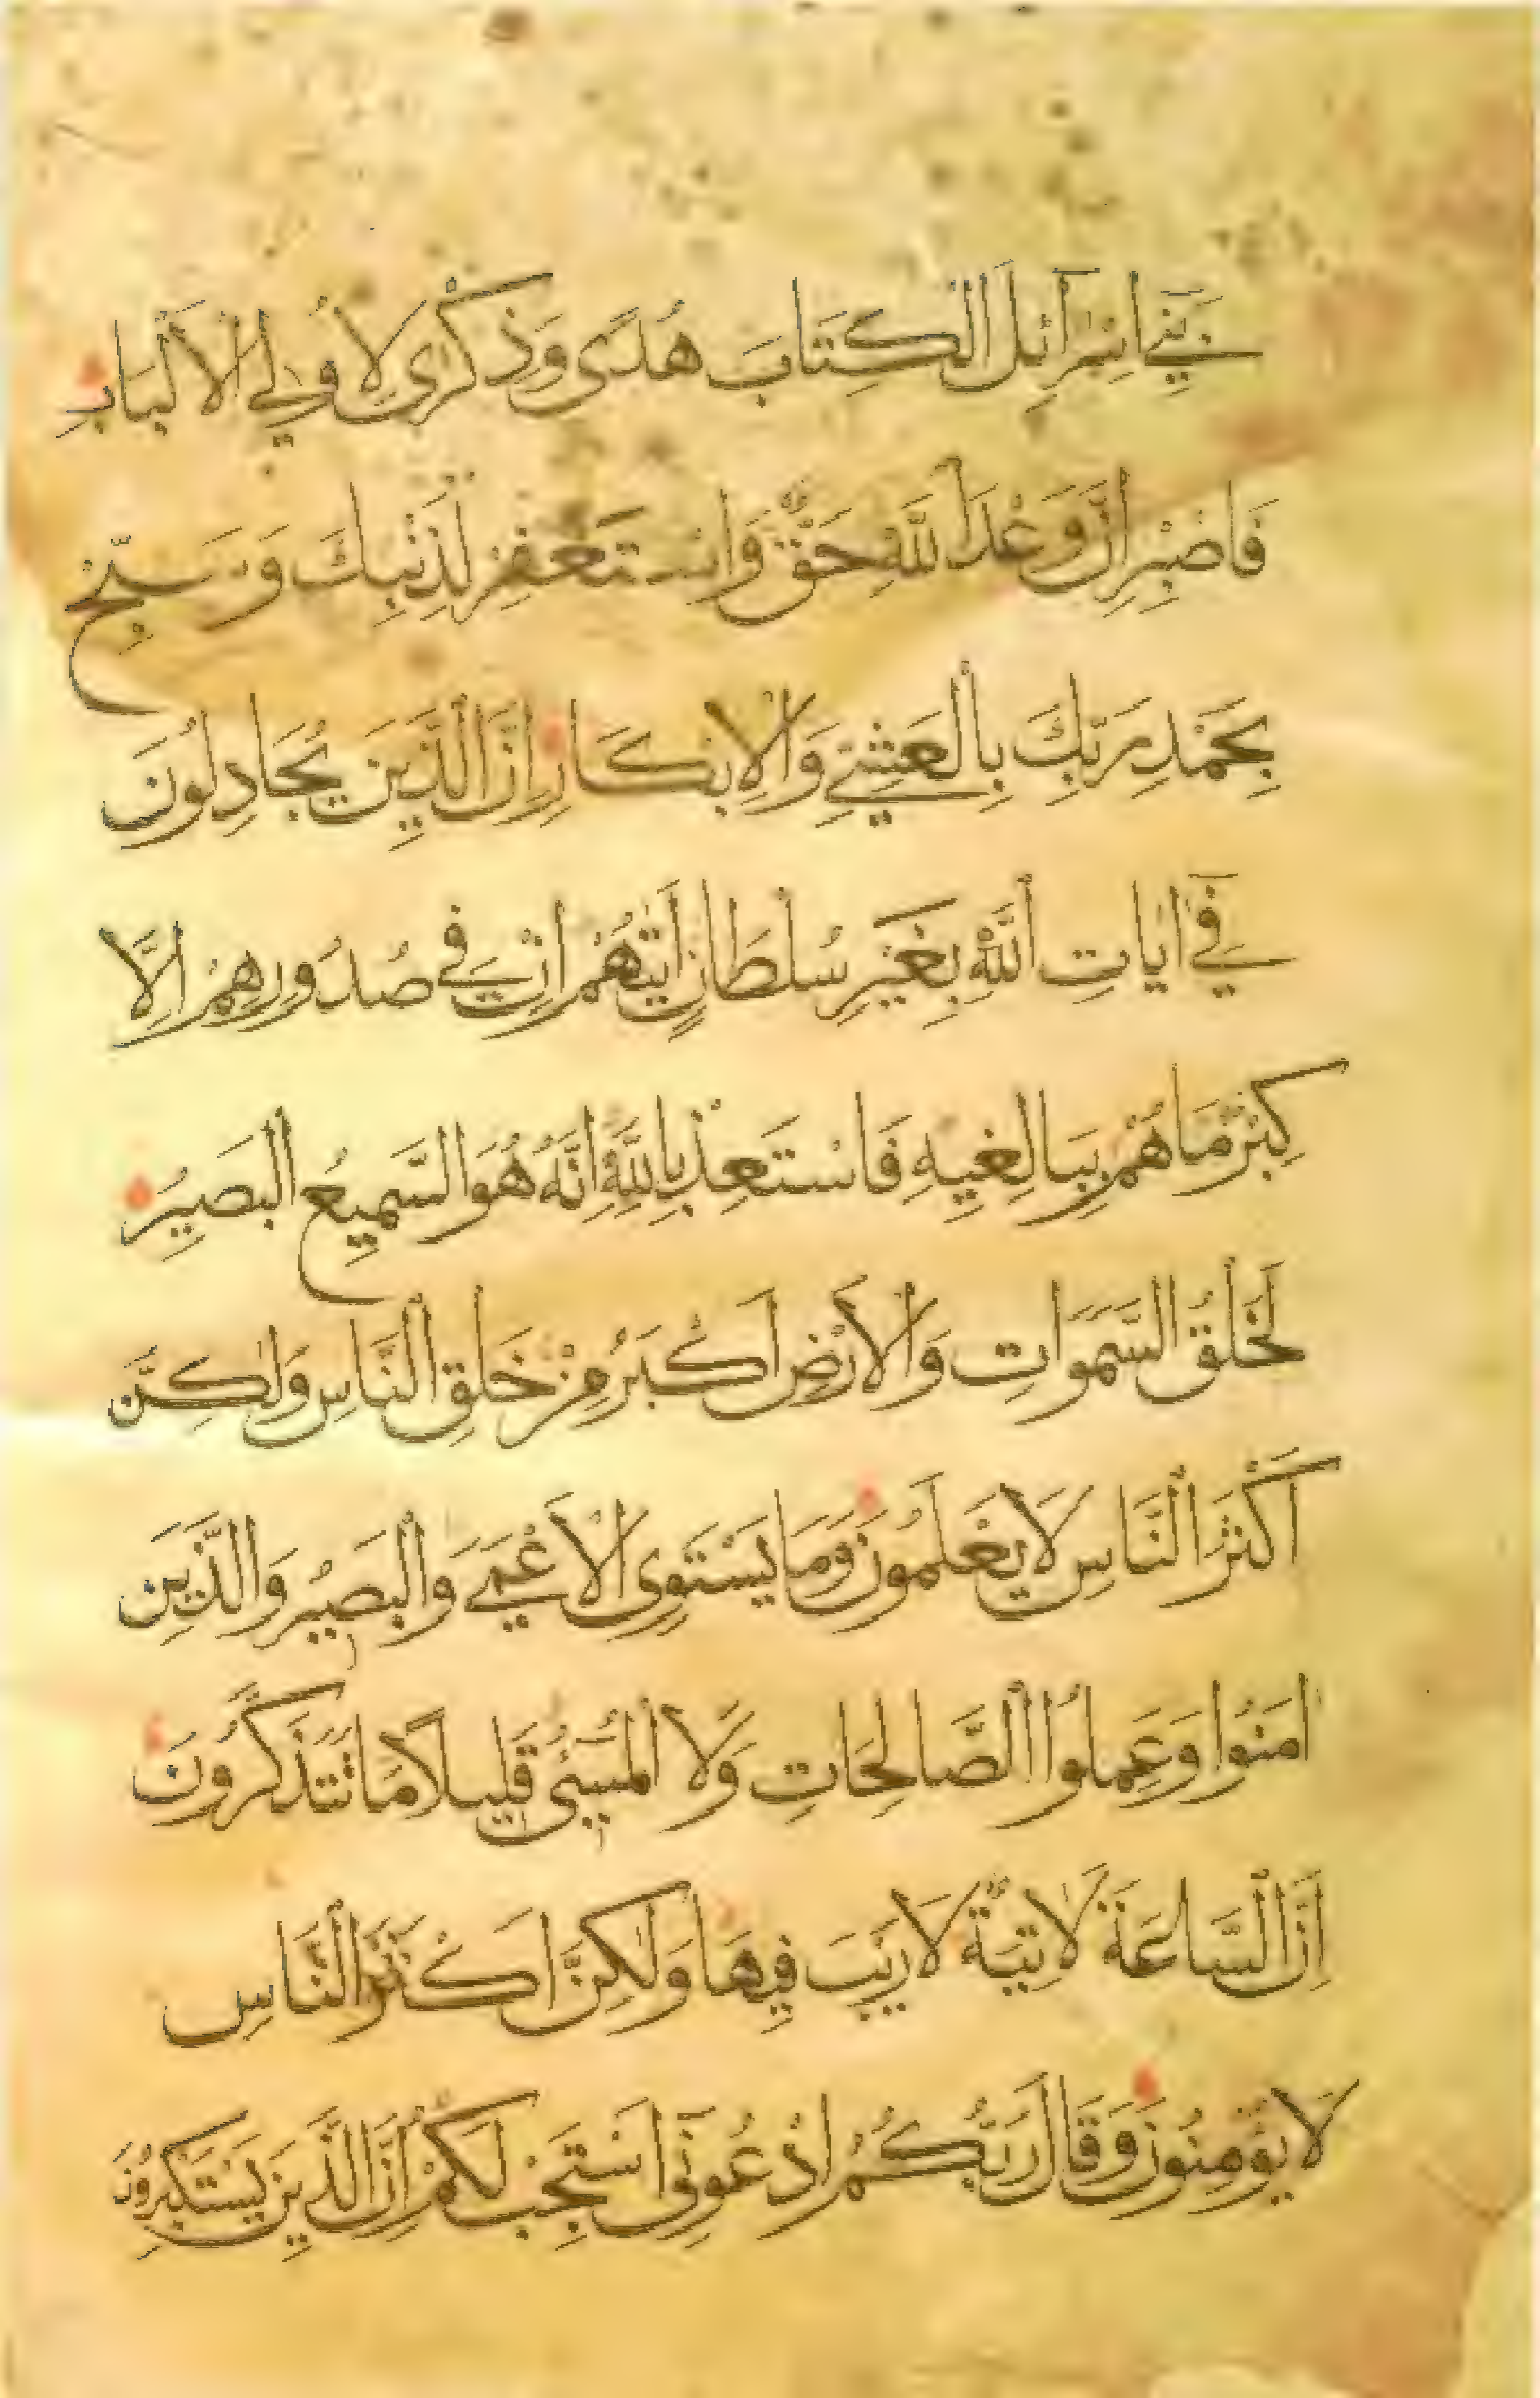 بَنِي اِسْرَآئِلَ الْكِتَابَ هُدًى وَذِكْرٰى لِاُولِي الْاَلْبَابِ
فَاصْبِرْ اِنَّ وَعْدَ اللّٰهِ حَقٌّ وَاسْتَغْفِرْ لِذَنْبِكَ وَسَبِّحْ
بِحَمْدِ رَبِّكَ بِالْعَشِيِّ وَالْاِبْكَارِ اِنَّ الَّذِينَ يُجَادِلُونَ
فِيٓ اٰيَاتِ اللّٰهِ بِغَيْرِ سُلْطَانٍ اَتٰيهُمْ اِنْ فِي صُدُورِهِمْ اِلَّا
كِبْرٌ مَا هُمْ بِبَالِغِيهِ فَاسْتَعِذْ بِاللّٰهِ اِنَّهُ هُوَ السَّمِيعُ الْبَصِيرُ
لَخَلْقُ السَّمٰوَاتِ وَالْاَرْضِ اَكْبَرُ مِنْ خَلْقِ النَّاسِ وَلٰكِنَّ
اَكْثَرَ النَّاسِ لَا يَعْلَمُونَ وَمَا يَسْتَوِي الْاَعْمٰى وَالْبَصِيرُ وَالَّذِينَ
اٰمَنُوا وَعَمِلُوا الصَّالِحَاتِ وَلَا الْمُسِيٓئُ قَلِيلًا مَا تَتَذَكَّرُونَ
اِنَّ السَّاعَةَ لَاٰتِيَةٌ لَا رَيْبَ فِيهَا وَلٰكِنَّ اَكْثَرَ النَّاسِ
لَا يُؤْمِنُونَ وَقَالَ رَبُّكُمُ ادْعُونِيٓ اَسْتَجِبْ لَكُمْ اِنَّ الَّذِينَ يَسْتَكْبِرُونَ